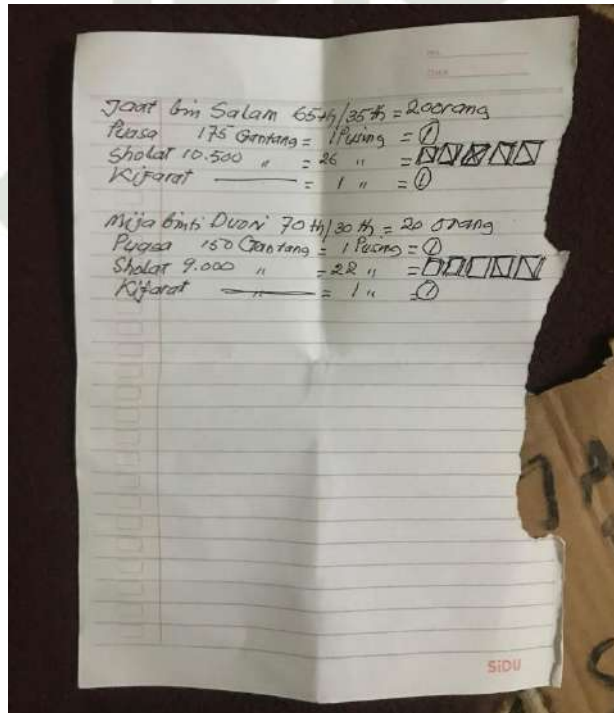 No.
Date
Jaat bin Salam 65th/35th = 20 orang
Puasa 175 Gantang = 1 Pusing = ①
Sholat 10.500 " = 26 " =
Kifarat = 1 " = ①
Mija binti Duori 70 th/30 th = 20 orang
Puasa 150 Gantang = 1 Pusing = ①
Sholat 9.000 " = 22 " =
Kifarat " = 1 " = ①
SiDU